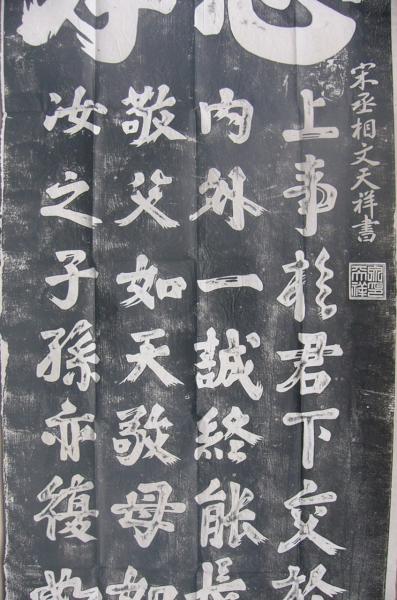 宋丞相文天祥書
上事於君下交於
內外一誠終能長
敬父如天敬母如
汝之子孫亦復如